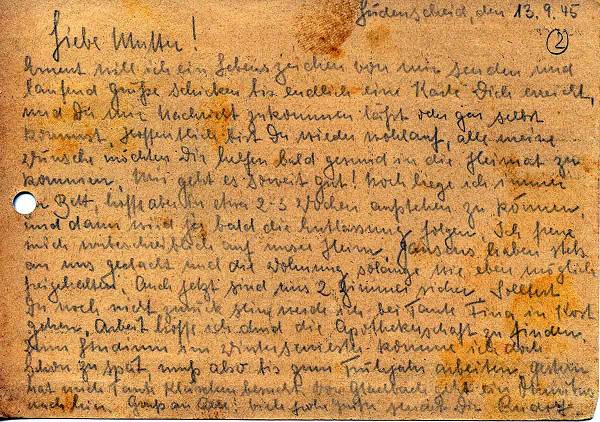 Lüdenscheid, den 13.9.45
(2)
Liebe Mutter!
Erneut will ich ein Lebenszeichen von mir senden und
laufend Grüße schicken bis endlich eine Karte Dich erreicht,
und Du mir Nachricht zukommen läßt oder gar selbst
kommst. Hoffentlich bist Du wieder wohlauf, alle meine
Wünsche möchten Dir helfen bald gesund in die Heimat zu
kommen. Mir geht es soweit gut! Noch liege ich immer
Bett, hoffe aber in etwa 2-3 Wochen aufstehen zu können,
und dann wird ja bald die Entlassung folgen. Ich freue
mich unbeschreiblich auf unser Heim. Jansens haben stets
an uns gedacht und die Wohnung solange wie eben möglich
freigehalten. Auch jetzt sind uns 2 Zimmer sicher. Solltest
Du noch nicht zurück sein, werde ich bei Tante Fina in Kost
gehen. Arbeit hoffe ich durch die Apothekerschaft zu finden.
Zum Studium im Wintersemester komme ich doch
schon zu spät, muß also bis zum Frühjahr arbeiten. Gestern
hat mich Tante besucht. Von Gladbach ein
nach hier. Gruß an viele frohe Grüße sendet Dir Rudolf